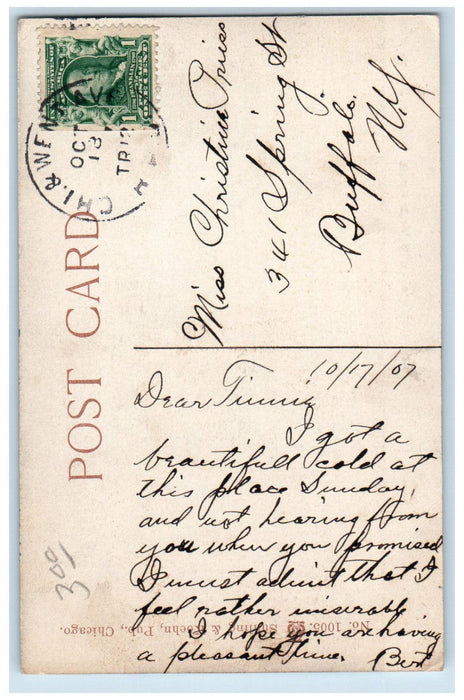 POST CARD
CHI. & WEN
OCT
18
TR
Miss Christina Priess
341 Spring St
Buffalo.
N.Y.
10/17/07
Dear Tinnie
I got a
beautifull cold at
this place Sunday,
and not hearing from
you when you promised
I must admit that I
feel rather miserable
I hope you are having
a pleasant time. Bert
No. 1005. & Koehn, Pub., Chicago.
300